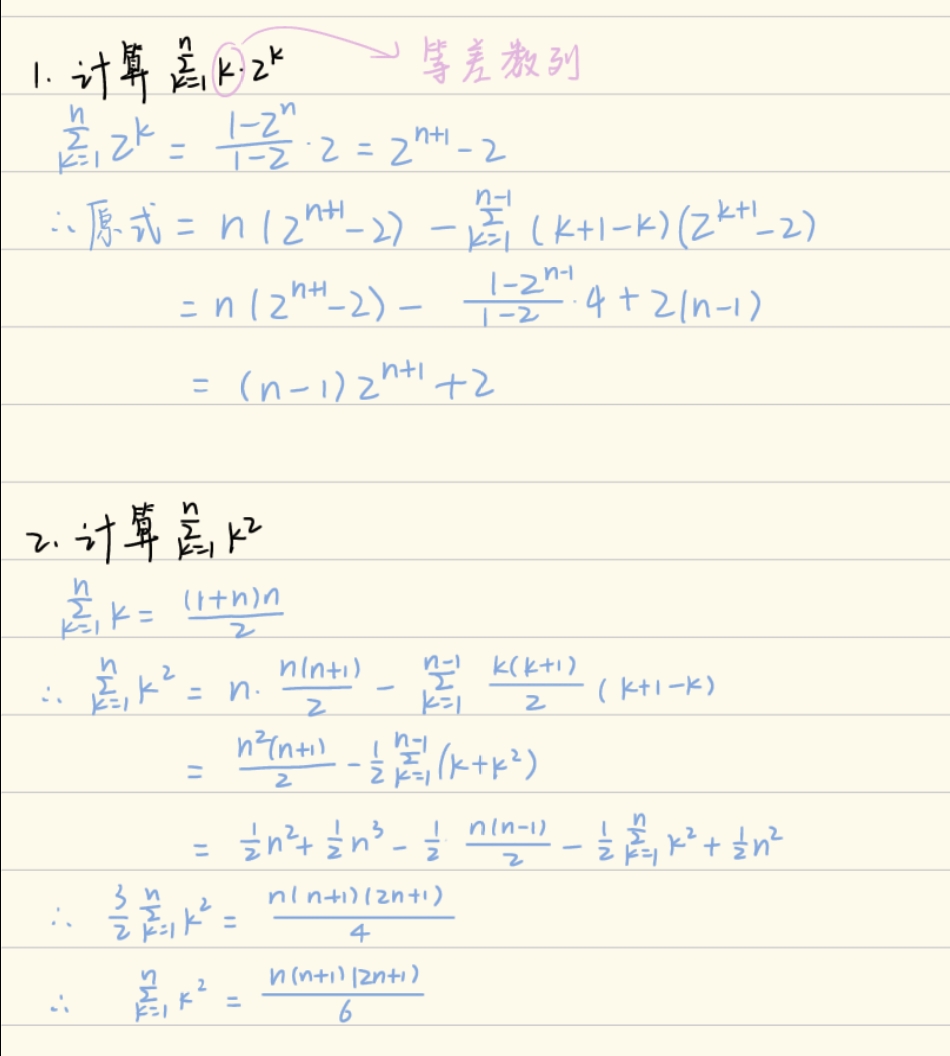 1. 计算 $\sum_{k=1}^{n} k \cdot 2^k$ → 等差数列
$\sum_{k=1}^{n} 2^k = \frac{1-2^n}{1-2} \cdot 2 = 2^{n+1} - 2$
∴原式 = $n(2^{n+1}-2) - \sum_{k=1}^{n-1} (k+1-k)(2^{k+1}-2)$
$= n(2^{n+1}-2) - \frac{1-2^{n-1}}{1-2} \cdot 4 + 2(n-1)$
$= (n-1)2^{n+1} + 2$
2. 计算 $\sum_{k=1}^{n} k^2$
$\sum_{k=1}^{n} k = \frac{(1+n)n}{2}$
∴ $\sum_{k=1}^{n} k^2 = n \cdot \frac{n(n+1)}{2} - \sum_{k=1}^{n-1} \frac{k(k+1)}{2} (k+1-k)$
$= \frac{n^2(n+1)}{2} - \frac{1}{2} \sum_{k=1}^{n-1} (k+k^2)$
$= \frac{1}{2}n^2 + \frac{1}{2}n^3 - \frac{1}{2} \cdot \frac{n(n-1)}{2} - \frac{1}{2} \sum_{k=1}^{n} k^2 + \frac{1}{2}n^2$
∴ $\frac{3}{2} \sum_{k=1}^{n} k^2 = \frac{n(n+1)(2n+1)}{4}$
∴ $\sum_{k=1}^{n} k^2 = \frac{n(n+1)(2n+1)}{6}$